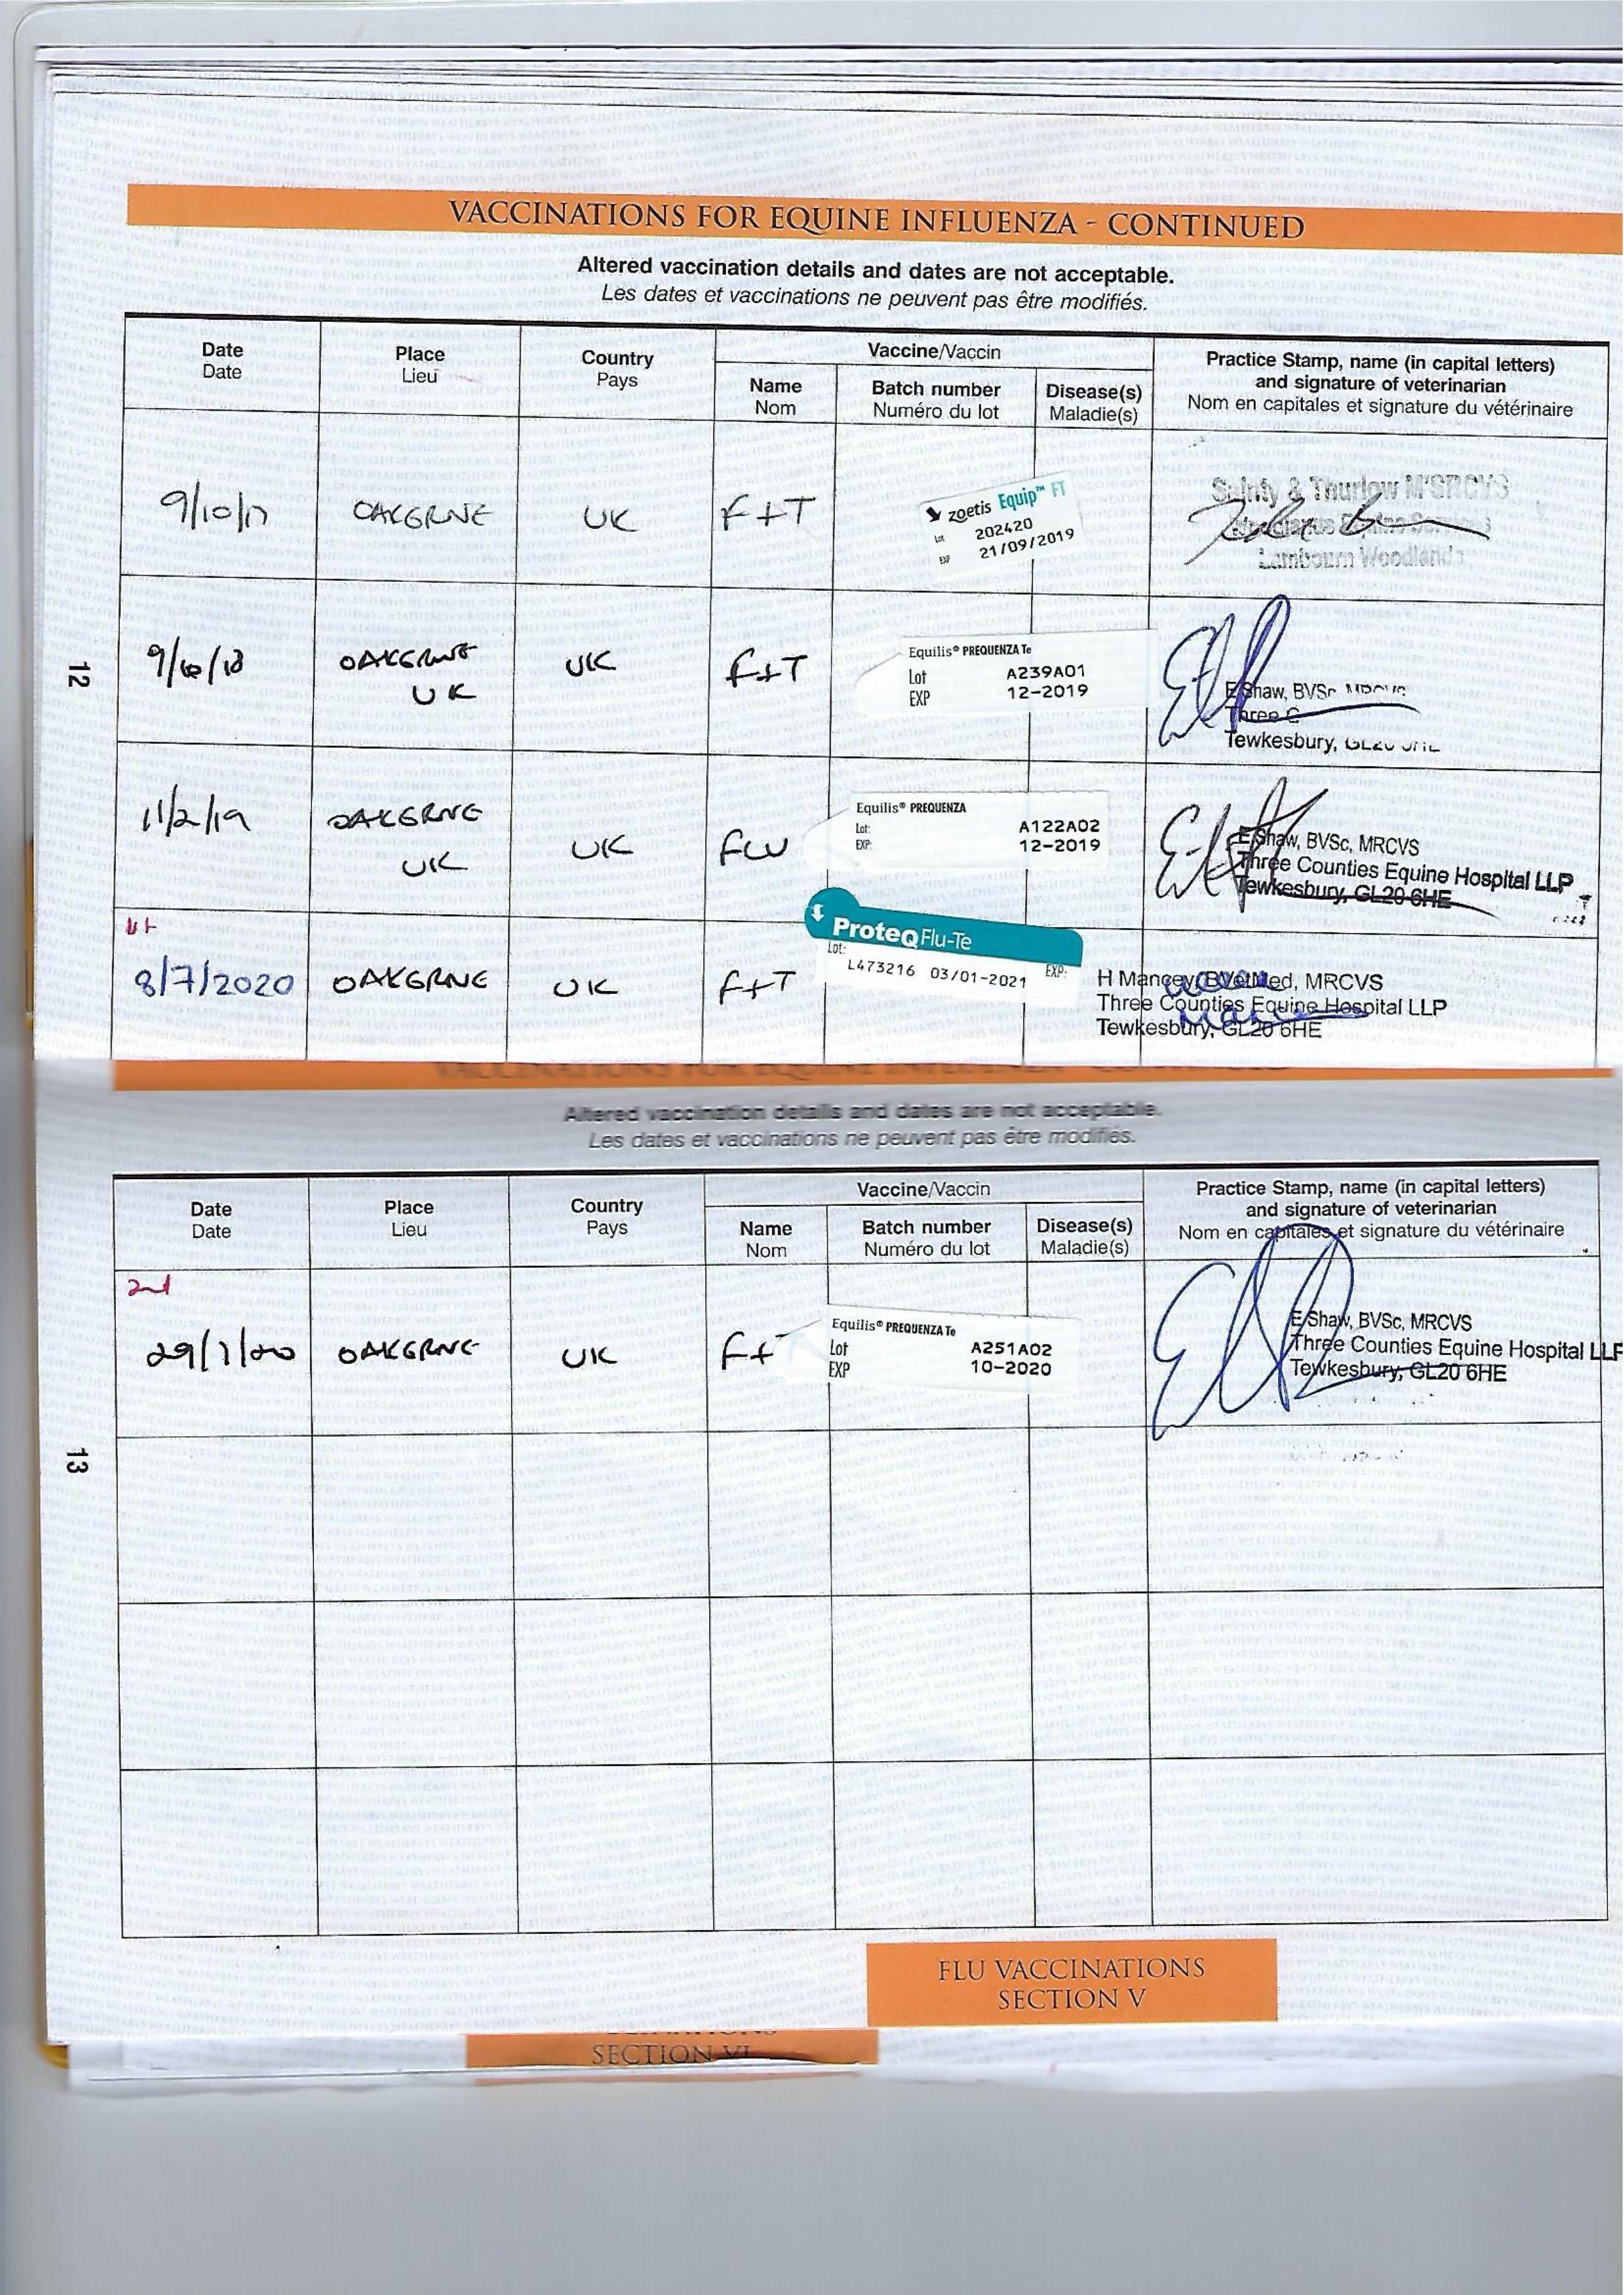 VACCINATIONS FOR EQUINE INFLUENZA - CONTINUED
Altered vaccination details and dates are not acceptable.
Les dates et vaccinations ne peuvent pas être modifiés.
Date
Date
Place
Lieu
Country
Pays
Vaccine/Vaccin
Name
Nom
Batch number
Numéro du lot
Disease(s)
Maladie(s)
Practice Stamp, name (in capital letters)
and signature of veterinarian
Nom en capitales et signature du vétérinaire
9/10/17
OAKGRNE
UK
F+T
zoetis Equip™ FT
Lot 202420
EXP 21/09/2019
& Thurlow M'SRCVS
Lambourn Woodlands
12
9/10/18
OAKGRNE
UK
UK
F+T
Equilis® PREQUENZA Te
Lot A239A01
EXP 12-2019
E Shaw, BVSc, MRCVS
Three C
Tewkesbury, GL20 6HE
11/2/19
OAKGRNE
UK
UK
FLU
Equilis® PREQUENZA
Lot: A122A02
EXP: 12-2019
E Shaw, BVSc, MRCVS
Three Counties Equine Hospital LLP
Tewkesbury, GL20 6HE
1st
8/7/2020
OAKGRNE
UK
F+T
ProteqFlu-Te
Lot: EXP:
L473216 03/01-2021
H Mancey, BVetMed, MRCVS
Three Counties Equine Hospital LLP
Tewkesbury, GL20 6HE
Altered vaccination details and dates are not acceptable.
Les dates et vaccinations ne peuvent pas être modifiés.
Date
Date
Place
Lieu
Country
Pays
Vaccine/Vaccin
Name
Nom
Batch number
Numéro du lot
Disease(s)
Maladie(s)
Practice Stamp, name (in capital letters)
and signature of veterinarian
Nom en capitales et signature du vétérinaire
2nd
29/7/20
OAKGRNE
UK
F+T
Equilis® PREQUENZA Te
Lot A251A02
EXP 10-2020
E Shaw, BVSc, MRCVS
Three Counties Equine Hospital LLP
Tewkesbury, GL20 6HE
13
FLU VACCINATIONS
SECTION V
SECTION VI